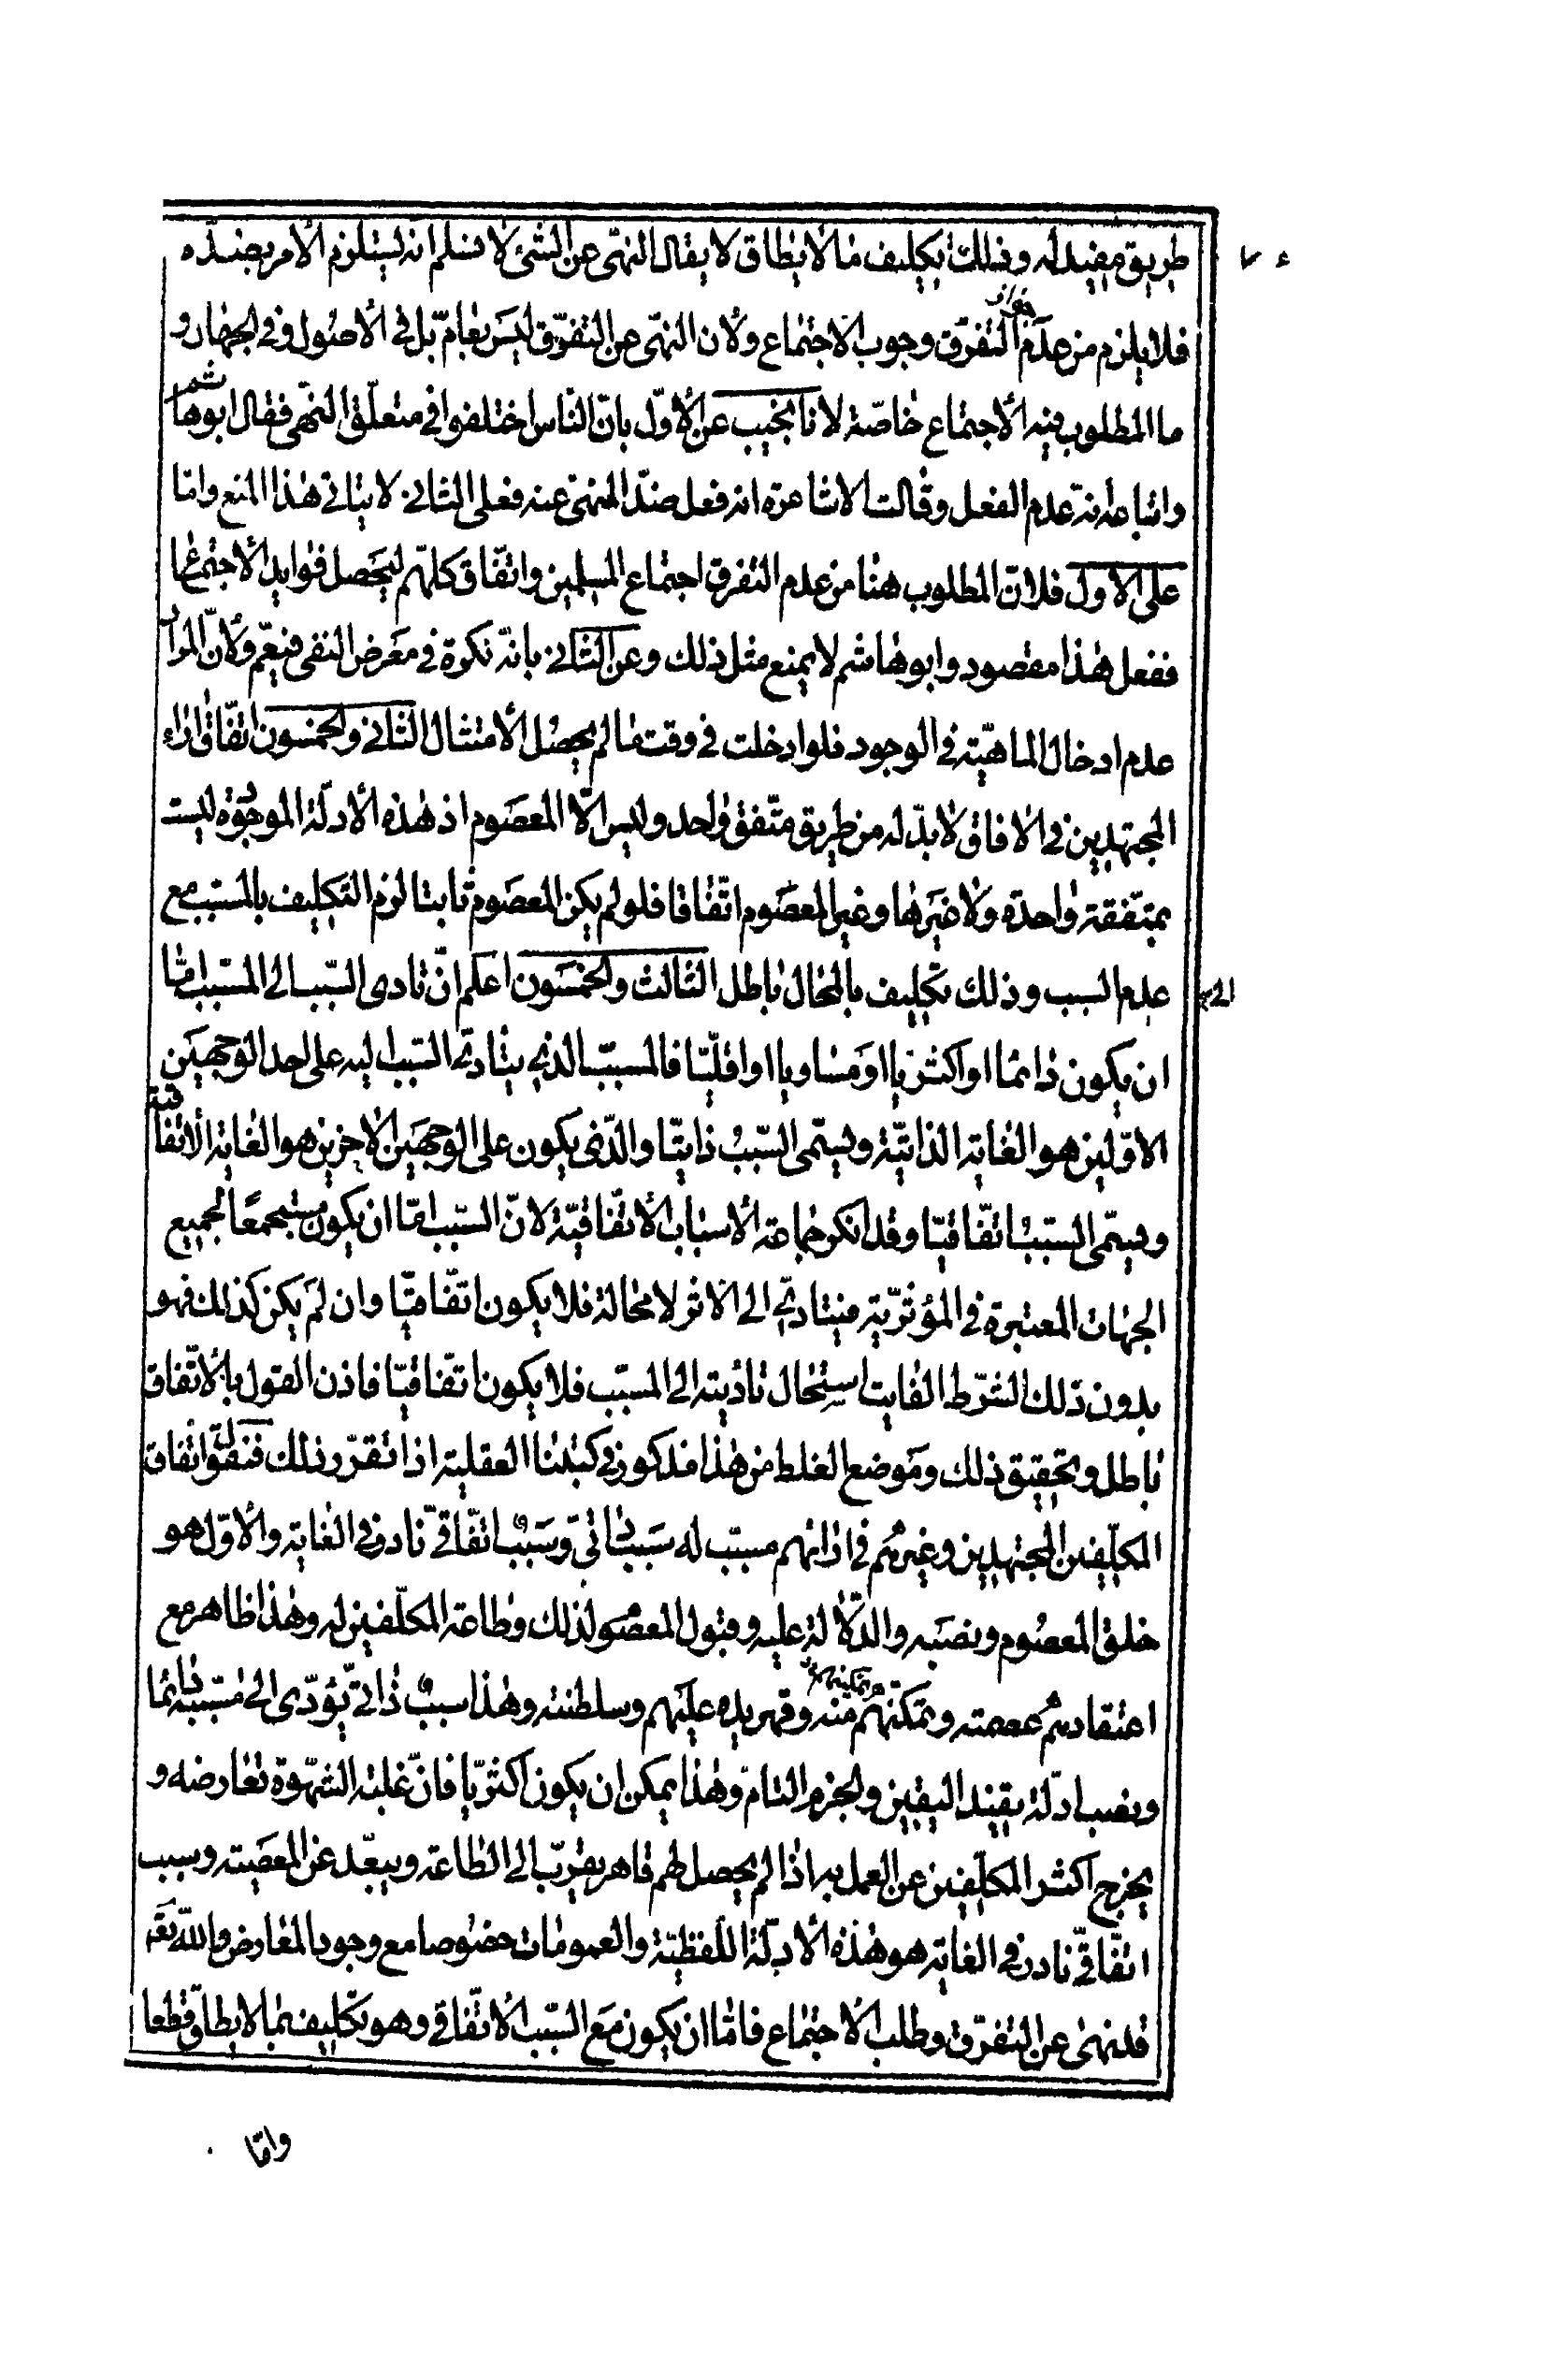 طريق مفيد له وذلك تكليف ما لا يطاق لا يقال النهى عن الشئ لا نسلم انه يستلزم الأمر بضده
فلا يلزم من عدم التفرق وجوب الاجتماع ولأن النهى عن التفرّق ليس بعامّ بل في الأصول وفي الجهاد و
ما المطلوب فيه الأجتماع خاصّة لانا نجيب عن الأوّل بانّ النّاس اختلفوا في متعلّق النهى فقال ابو هاشم
واتباعه انه عدم الفعل وقالت الاشاعرة انه فعل ضدّ المنهىّ عنه فعلى الثاني لا يتاتى هذا المنع وامّا
على الاول فلانّ المطلوب هنا من عدم التفرق اجتماع المسلمين واتّفاق كلّهم ليحصل فوايد الأجتماع
ففعل هذا مقصود وابو هاشم لا يمنع مثل ذلك وعن الثاني بانّه نكرة في معرض النفى فيعّم ولأنّ المراد
عدم ادخال الماهيّة في الوجود فلو ادخلت في وقت ما لم يحصل الأمتثال الثاني والخمسون اتّفاق اراء
المجتهدين في الافاق لا بدّ له من طريق متّفق واحد وليس الّا المعصوم اذ هذه الأدلّة الموجودة ليست
بمتّفقة واحدة ولا غيرها وغير المعصوم اتّفاقا فلو لم يكن المعصوم ثابتا لزم التكليف بالمسبّب مع
عدم السبب وذلك تكليف بالمحال باطل الثالث والخمسون اعلم انّ تادى السّبب الى المسبّب امّا
ان يكون دائما او اكثريا او مساويا او اقليّا فالمسبّب الذي يتادى السّبب اليه على احد الوجهين
الاوّلين هو الغاية الذاتيّة ويسمى السّبب ذاتيّا والّذى يكون على الوجهين الأخرين هو الغاية الأتفاقية
ويسمّى السّبب اتّفاقيّا وقد انكر جماعة الأسباب الأتّفاقيّة لانّ السّبب امّا ان يكون مستجمعًا لجميع
الجهات المعتبرة في المؤثّريّة فيتادى الى الاثر لا محالة فلا يكون اتّفاقيّا وان لم يكن كذلك فهو
بدون ذلك الشّرط الفايت استحال تاديته الى المسبّب فلا يكون اتّفاقيّا فاذن القول بالأتّفاق
باطل وتحقيق ذلك وموضع الغلط من هذا مذكور في كتبنا العقلية اذا تقرّر ذلك فنقول اتفاق
المكلّفين المجتهدين وغيرهم في اذانهم مسبّب له سبب ذاتىّ وسبب اتّفاقىّ نادر في الغاية والأوّل هو
خلق المعصوم ونصبه والدّلالة عليه وقبول المعصوم لذلك وطاعة المكلّفين له وهذا ظاهر مع
اعتقادهم عصمته وتمكنهم منه وقهر يده عليهم وسلطنته وهذا سبب ذاتى يؤدّى الى مسبّبه دائما
ونصب ادلّة يفيد اليقين والجزم التامّ وهذا يمكن ان يكون اكثريّا فانّ غلبة الشهوة تعارضه و
يخرج اكثر المكلّفين عن العمل به اذا لم يحصل لهم قاهر يقرّب الى الطاعة ويبعّد عن المعصية وسبب
اتّفاقىّ نادر في الغاية هو هذه الأدلّة اللّفظيّة والعمومات خصوصا مع وجود المعارض والله تعالى
قد نهى عن التفرّق وطلب الأجتماع فامّا ان يكون مع السّبب الأتّفاقى وهو تكليف بما لا يطاق قطعا
وامّا